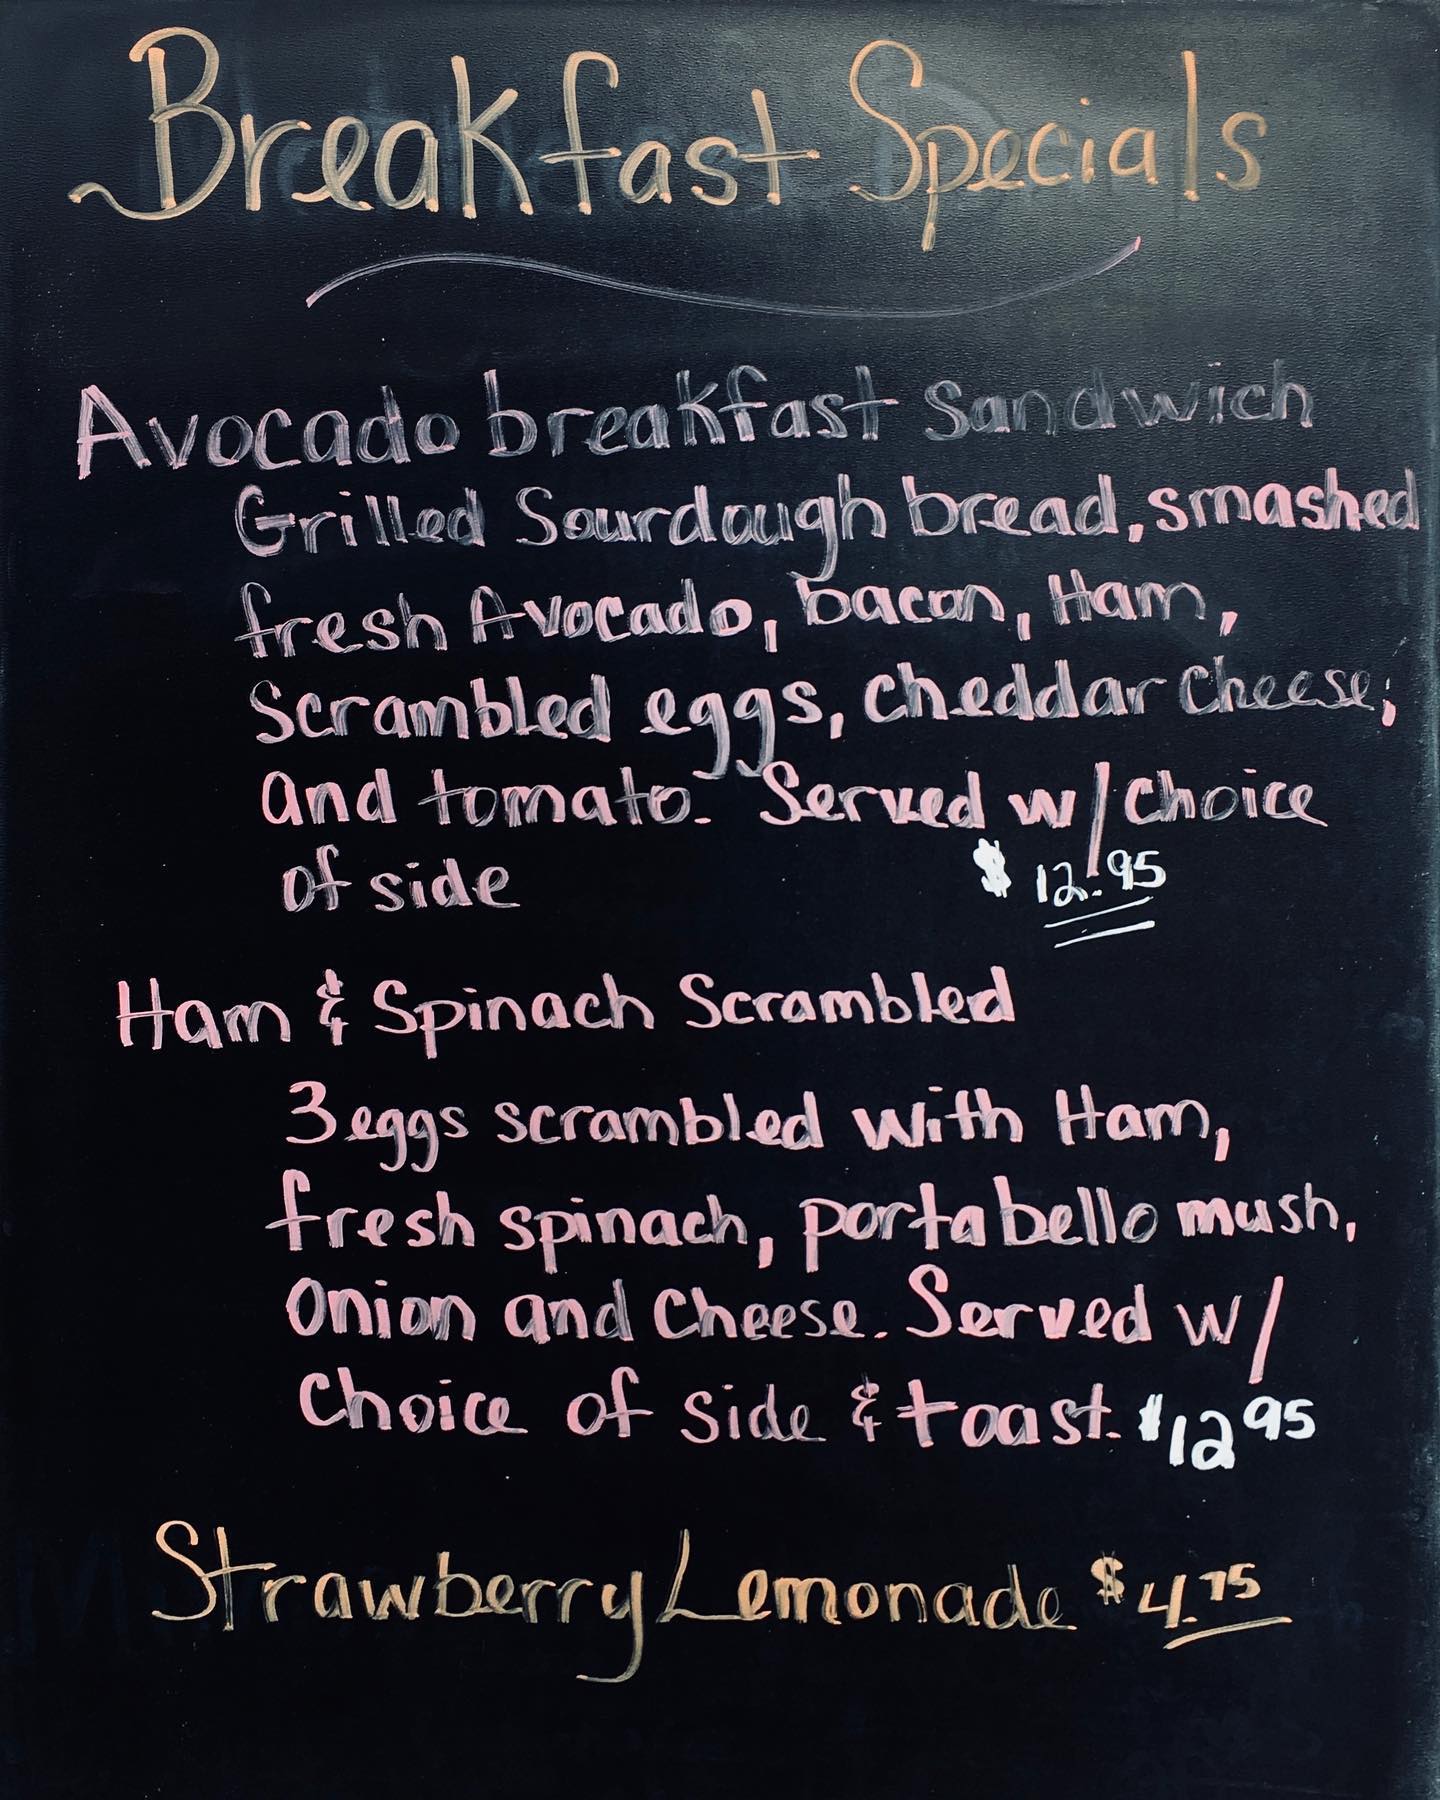 Breakfast Specials
Avocado breakfast sandwich
Grilled Sourdough bread, smashed
fresh Avocado, bacon, Ham,
Scrambled eggs, cheddar cheese,
and tomato. Served w/choice
of side $12.95
Ham & Spinach Scrambled
3 eggs scrambled with Ham,
fresh spinach, portabello mush,
Onion and cheese. Served w/
Choice of side & toast. $12 95
Strawberry Lemonade $4.75